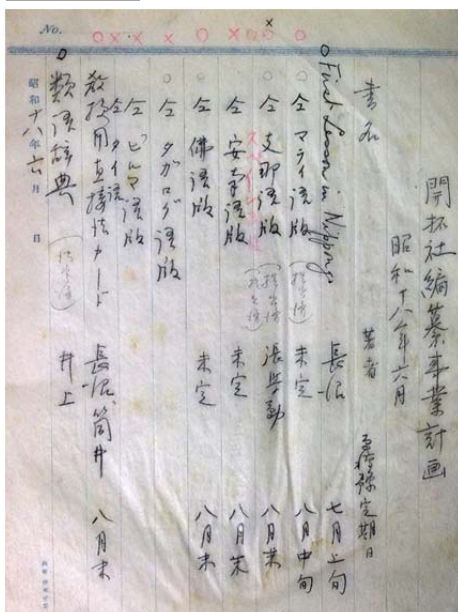 開拓社編纂事業計画
昭和十八年六月
書名 著者 予定期日
First Lesson in Nippongo 長沼 七月上旬
仝 マライ語版 未定 八月中旬
仝 支那語版 張 八月末
仝 安南語版 未定 八月末
仝 佛語版 未定 八月末
仝 タガログ語版
仝 ビルマ語版
仝 タイ語
教授用直接法カード 長沼、筒井 八月末
類語辞典 井上
昭和十八年六月 日
No.